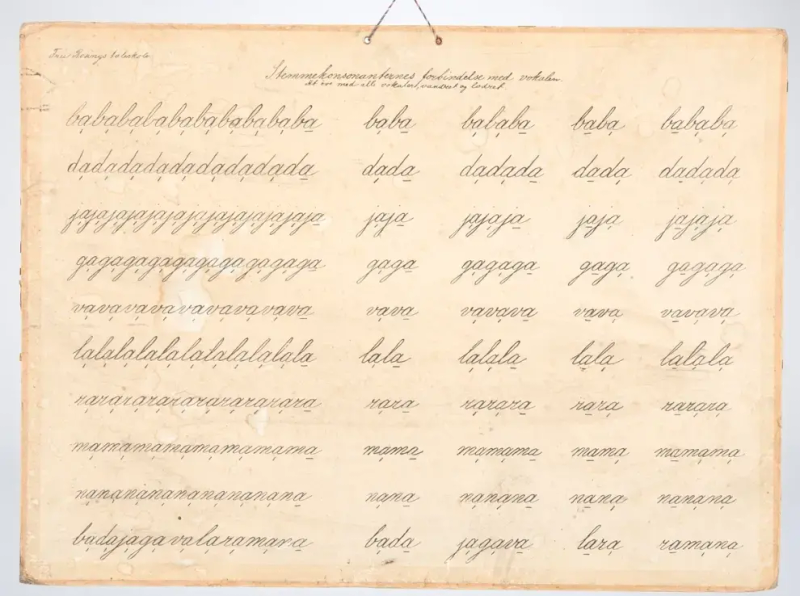 Stemmekonsonanternes forbindelse med vokalen.
At øve med alle vokaler, vandret og lodret.
babababababababababa baba bababa baba bababa
dadadadadadadadadada dada dadada dada dadada
jajajajajajajajajaja jaja jajaja jaja jajaja
gagagagagagagagagaga gaga gagaga gaga gagaga
vavavavavavavavavava vava vavava vava vavava
lalalalalalalalalala lala lalala lala lalala
rararararararararara rara rarara rara rarara
mamamamamamamamamama mama mamama mama mamama
nananananananananana nana nanana nana nanana
badajagavalaramana bada jagava lara ramana